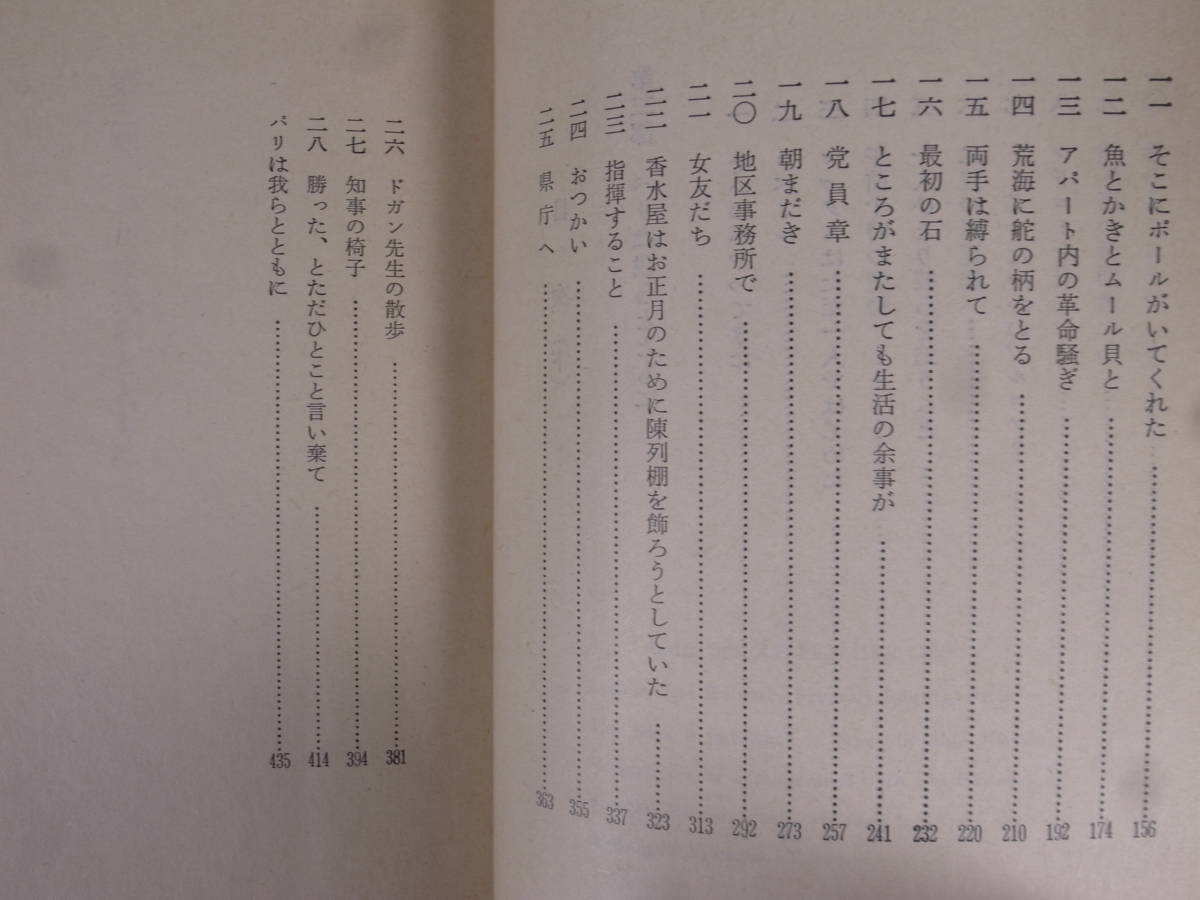 一一 そこにポールがいてくれた……………………156
一二 魚とかきとムール貝と……………………174
一三 アパート内の革命騒ぎ……………………192
一四 荒海に舵の柄をとる……………………210
一五 両手は縛られて……………………220
一六 最初の石……………………232
一七 ところがまたしても生活の余事が……………………241
一八 党員章……………………257
一九 朝まだき……………………273
二〇 地区事務所で……………………292
二一 女友だち……………………313
二二 香水屋はお正月のために陳列棚を飾ろうとしていた…………323
二三 指揮すること……………………337
二四 おつかい……………………355
二五 県庁へ……………………363
二六 ドガン先生の散歩……………………381
二七 知事の椅子……………………394
二八 勝った、とただひとこと言い棄て……………………414
パリは我らとともに……………………435